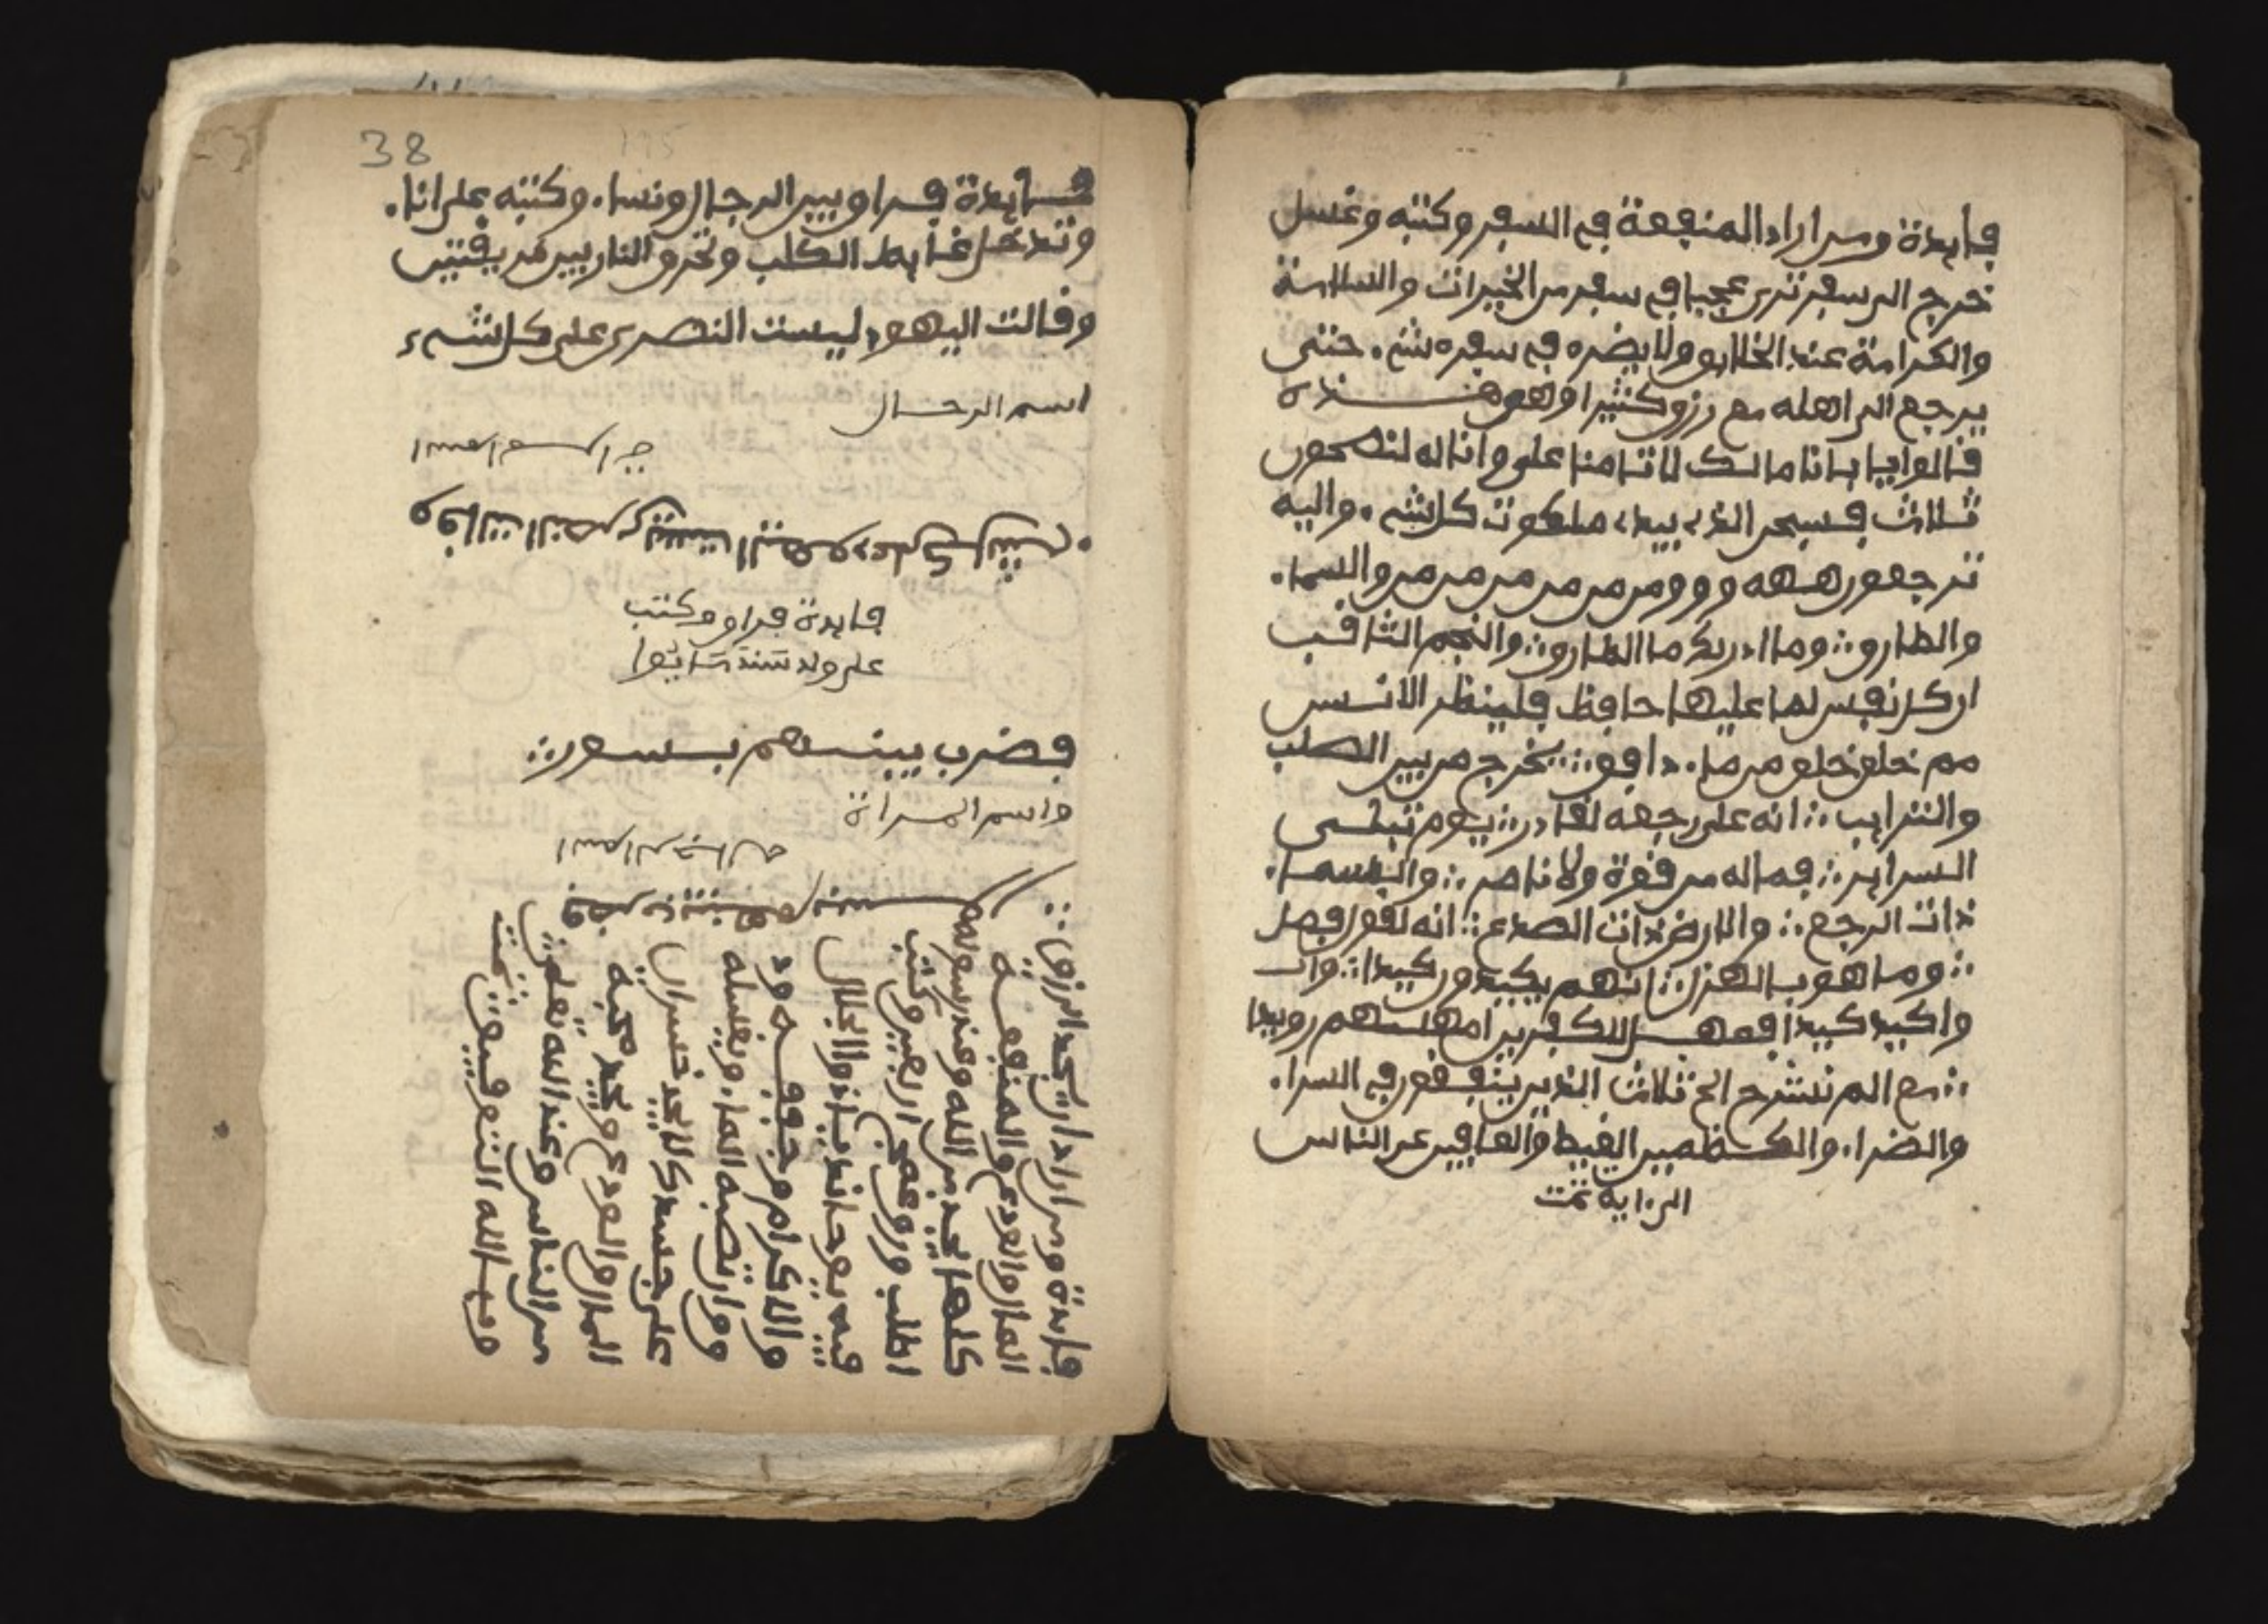 فايدة ومن اراد المنفعة في السفر وكتبه وغسل
خرج الى سفر ترى عجبا في سفر من الخيرات والسلامة
والكرامة عند الخلايق ولا يضره في سفره شيء حتى
يرجع الى اهله مع رزق كثيرا وهو هذه
قالوا يابانا مالك لا تامنا على وانا له لنصحون
ثلاث فسبحن الذي بيده ملكوت كل شيء واليه
ترجعون ههه و و و من من من من من من والسماء
والطارق وما ادريك ما الطارق والنجم الثاقب
ان كل نفس لما عليها حافظ فلينظر الانسن
مم خلق خلق من ماء دافق يخرج من بين الصلب
والترايب انه على رجعه لقادر يوم تبلى
السراير فما له من قوة ولا ناصر والسماء
ذات الرجع والارض ذات الصدع انه لقول فصل
وما هو بالهزل انهم يكيدون كيدا وا
واكيد كيدا فمهل الكفرين امهلهم رويدا
مع الم نشرح الخ ثلاث الذين ينفقون في السراء
والضراء والكظمين الغيظ والعافين عن الناس
الى اية تمت
38
فايدة فراق بين الرجال ونساء وكتبه على اناء
وتدخل غايط الكلب وتحرق النار بين طريقتين
وقالت اليهود ليست النصرى على كل شيء
اسم الرجال
وقالت النصرى ليست اليهود على كل شيء
فايدة فراق وكتب
على ولد
فضرب بينهم بسور
واسم المراة
فضرب بينهم
فايدة ومن اراد ان يجد الرزق
المال والعرع والمنفعة
كلها يجد من الله وعند رسوله
اطلب ورق وكتب
فيه يا ذو الجلال
والاكرام
ومن ارتضبه الماء ويغسله
على جسدك لا يجد خسران
المال ويجد محبة
من الناس وعند الله تعلى
وبالله التوفيق تمت